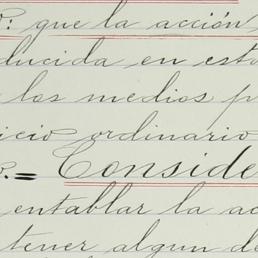 o: que la acción
ducida en esta
los medios p
icio ordinario
o.= Conside
entablar la ac
tener algun de